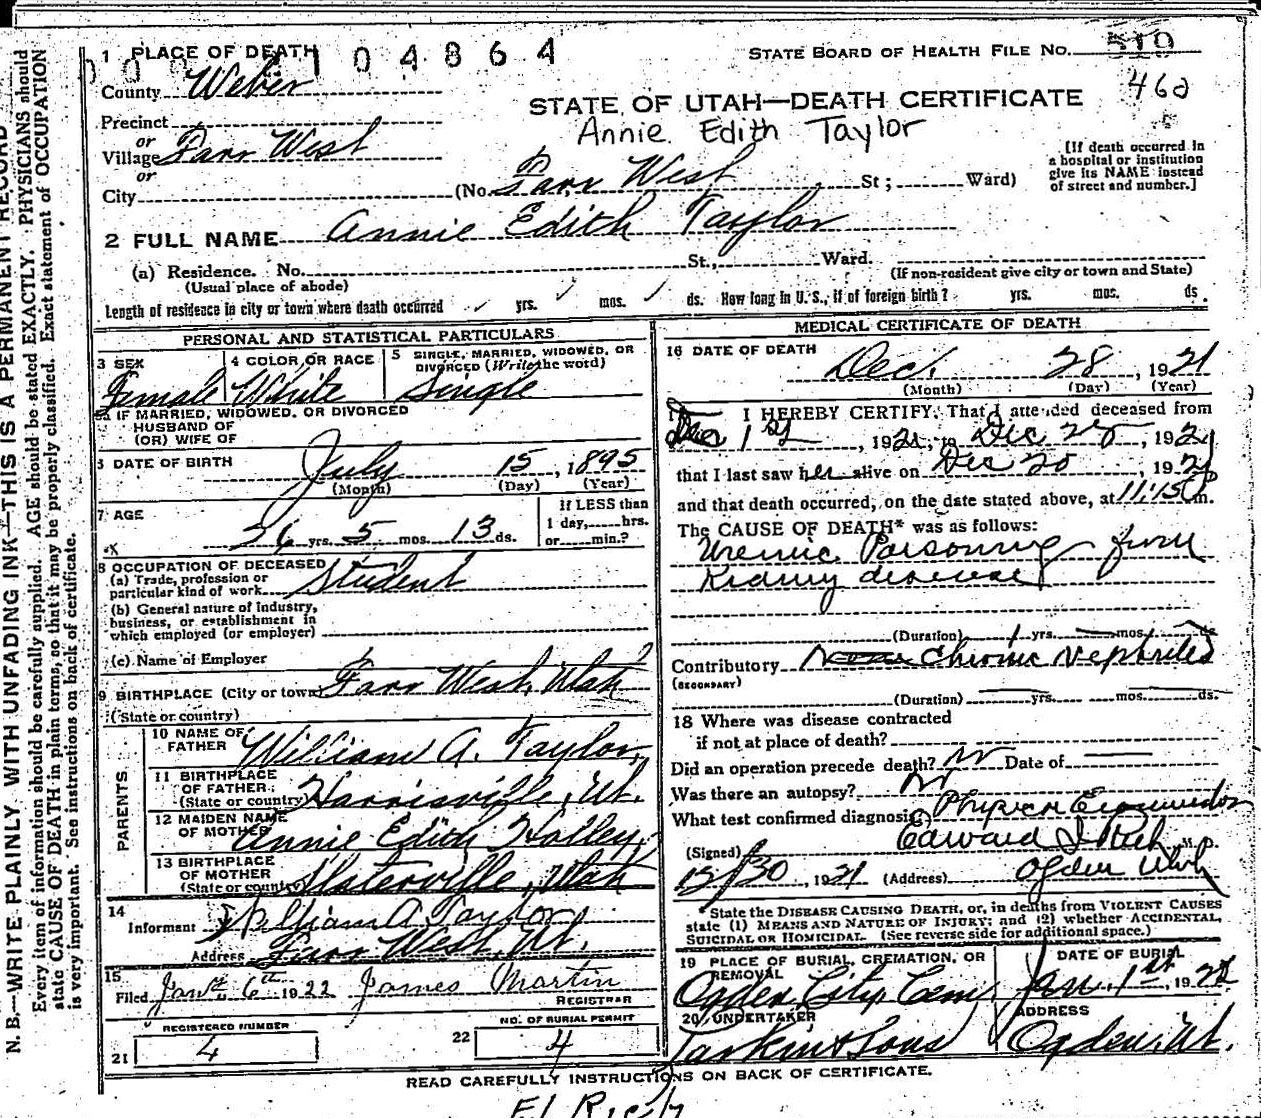 N. B.—WRITE PLAINLY WITH UNFADING INK—THIS IS A PERMANENT RECORD
Every item of information should be carefully supplied. AGE should be stated EXACTLY. PHYSICIANS should
state CAUSE OF DEATH in plain terms, so that it may be properly classified. Exact statement of OCCUPATION
is very important. See instructions on back of certificate.
1 PLACE OF DEATH 104864
STATE BOARD OF HEALTH FILE No. 510
County Weber
460
STATE OF UTAH—DEATH CERTIFICATE
Precinct
Annie Edith Taylor
or
Village Farr West
or
City
(No. Farr West St ; Ward)
[If death occurred in
a hospital or institution
give its NAME instead
of street and number.]
2 FULL NAME Annie Edith Taylor
(a) Residence. No. St., Ward.
(Usual place of abode)
(If non-resident give city or town and State)
Length of residence in city or town where death occurred yrs. mos. ds. How long in U. S., if of foreign birth? yrs. mos. ds.
PERSONAL AND STATISTICAL PARTICULARS
3 SEX
Female
4 COLOR OR RACE
White
5 SINGLE, MARRIED, WIDOWED, OR
DIVORCED (Write the word)
Single
5a IF MARRIED, WIDOWED, OR DIVORCED
HUSBAND OF
(OR) WIFE OF
6 DATE OF BIRTH July 15, 1895
(Month) (Day) (Year)
7 AGE
26 yrs. 5 mos. 13 ds.
If LESS than
1 day, hrs.
or min.?
8 OCCUPATION OF DECEASED
(a) Trade, profession or
particular kind of work Student
(b) General nature of Industry,
business, or establishment in
which employed (or employer)
(c) Name of Employer
9 BIRTHPLACE (City or town) Farr West, Utah
(State or country)
PARENTS
10 NAME OF
FATHER William A. Taylor
11 BIRTHPLACE
OF FATHER
(State or country) Harrisville, Ut.
12 MAIDEN NAME
OF MOTHER Annie Edith Holley
13 BIRTHPLACE
OF MOTHER
(State or country) Slaterville, Utah
14
Informant William A Taylor
Address Farr West, Ut.
15
Filed Jan. 6th 1922 James Martin
REGISTRAR
REGISTERED NUMBER
21 4
NO. OF BURIAL PERMIT
22 4
MEDICAL CERTIFICATE OF DEATH
16 DATE OF DEATH
Dec. 28, 1921
(Month) (Day) (Year)
17 I HEREBY CERTIFY, That I attended deceased from
Dec 1st, 1921, to Dec 28, 1921
that I last saw her alive on Dec 20, 1921
and that death occurred, on the date stated above, at 11:15 P m.
The CAUSE OF DEATH* was as follows:
Uremic Poisoning from
Kidney disease
(Duration) 1 yrs. mos. ds.
Contributory Chronic Nephritis
(SECONDARY)
(Duration) yrs. mos. ds.
18 Where was disease contracted
if not at place of death?
Did an operation precede death? No Date of
Was there an autopsy? No
What test confirmed diagnosis? Physical Examination
(Signed) Edward I Rich M. D.
12/30, 1921 (Address) Ogden Utah
*State the DISEASE CAUSING DEATH, or, in deaths from VIOLENT CAUSES
state (1) MEANS AND NATURE OF INJURY; and (2) whether ACCIDENTAL,
SUICIDAL OR HOMICIDAL. (See reverse side for additional space.)
19 PLACE OF BURIAL, CREMATION, OR
REMOVAL
Ogden City Cem
DATE OF BURIAL
Jan. 1st, 1922
20 UNDERTAKER
Larkin & Sons
ADDRESS
Ogden, Ut.
READ CAREFULLY INSTRUCTIONS ON BACK OF CERTIFICATE.
EI Rich